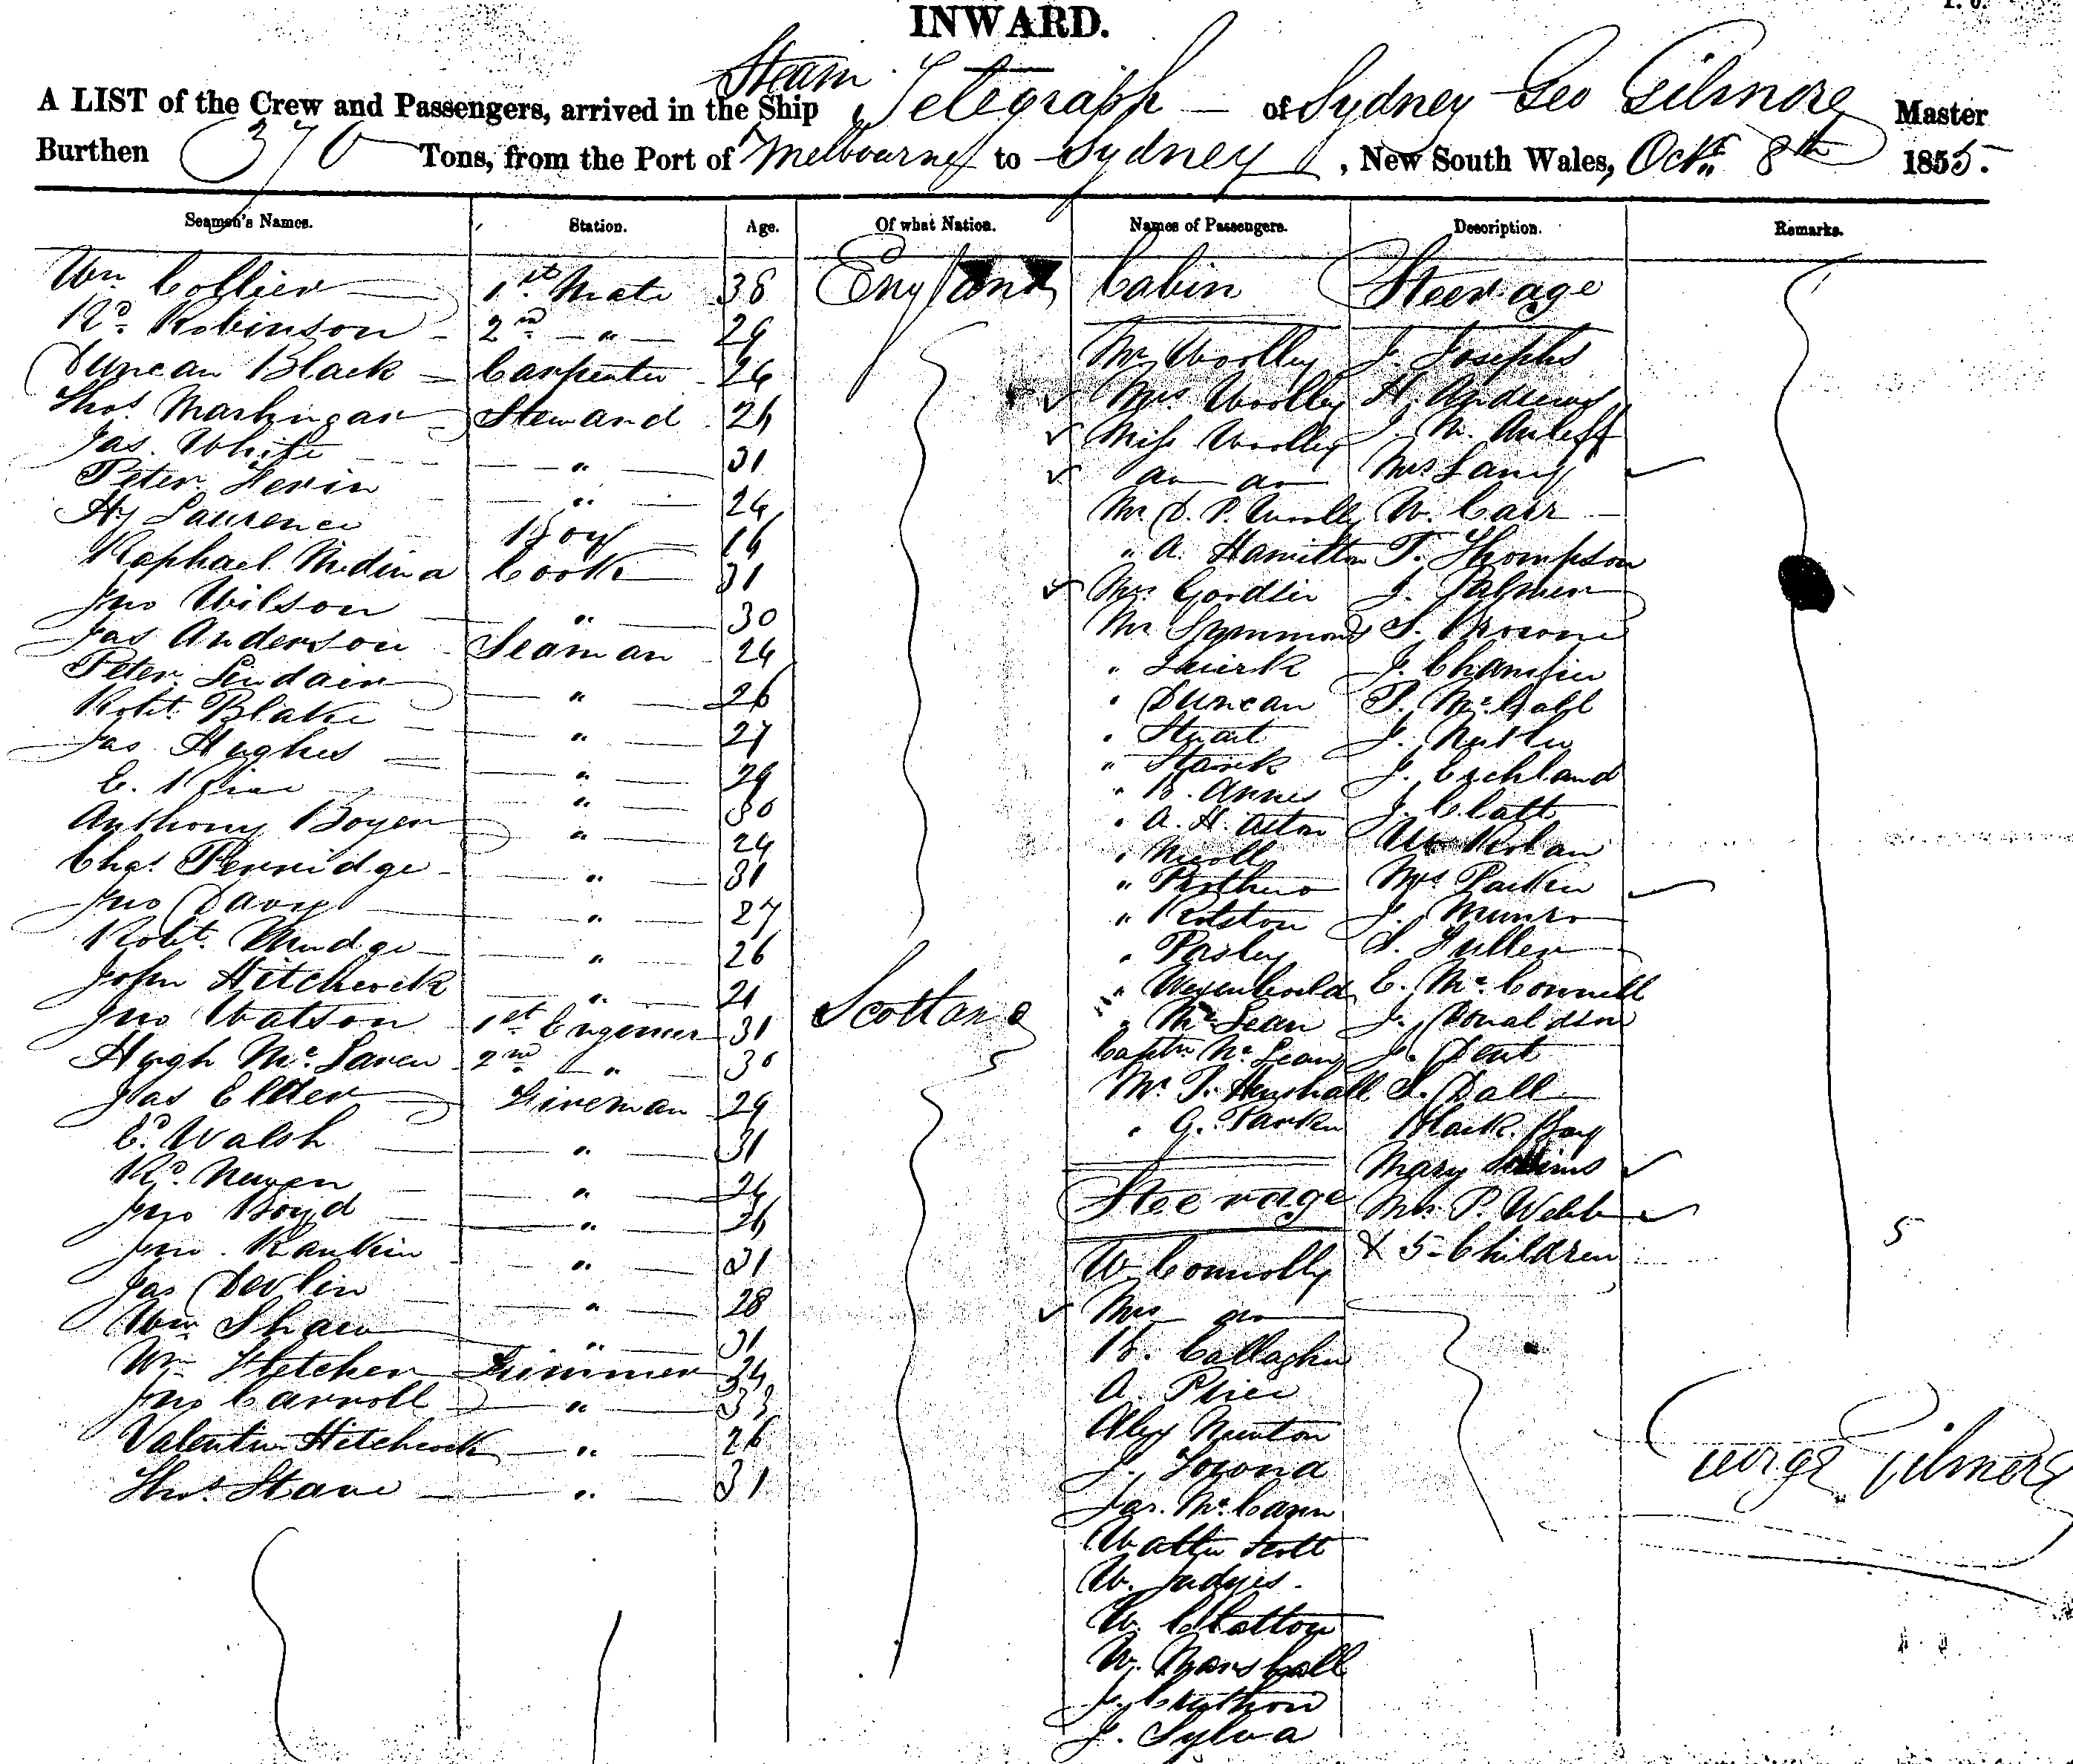 INWARD.
A LIST of the Crew and Passengers, arrived in the Steam Ship Telegraph — of Sydney Geo Gilmore Master
Burthen 370 Tons, from the Port of Melbourne to Sydney, New South Wales, Octr. 8th 1855.
Seamen's Names. Station. Age. Of what Nation. Names of Passengers. Description. Remarks.
Wm Collier 1st Mate 38 England Cabin Steerage
Rd. Robinson 2nd " 29
Duncan Black Carpenter 26 Mr Woolley J. Josephs
Thos. Steward 26 Mrs Woolley H. Andrews
Jas. White " 31 Miss Woolley J. W.
Peter " 24 do do Mrs Lang
Hy Laurence Boy 16 Mr D. P. Woolley W. Carr
Raphael Medina Cook 31 " A. Hamilton T. Thompson
Jno Wilson " 30 Mrs J. Palmer
Jas Anderson Seaman 24 Mr Symmonds S. Browne
Peter Sindair " 26 " J.
Robt. Blake " 27 " Duncan P. McCall
Jas Hughes " 29 " Stuart J.
E. " 30 " Stark J.
Anthony Boyer " 24 " A. H. Acton J. Clatt
Chas. Perridge " 31 " Nicoll
Jno Davy " 27 " Prothero Mrs Parker
Robt. Mudge " 26 " Rolston J. Munro
John Hitchcock " 21 " Pasley S. Fuller
Jno Watson 1st Engineer 31 Scotland " E. McConnell
Hugh McLaren 2nd " 30 " McLean J. Donaldson
Jas Elder Fireman 29 Captn McLean J. Dent
Ed. Walsh " 31 Mr T. Henshall S. Dall
Rd. " 24 " G. Parker Black Boy
Jno Boyd " 26 Mary
Jno. Rankin " 31 Steerage Mrs P. Webb
Jas Devlin " 28 W Connolly & 5 Children 5
Wm Shaw " 31 Mrs do
Wm Fletcher Trimmer 24 B. Callaghn
Jno Carroll " 33 A. Price
Valentin Hitchcock " 26 Alex Munton
Thos. Stave " 31 J.
Jas. McCann
Walter Scott
W. Judges
W. Clatton
W. Marshall
J.
J. Sylva
George Gilmore